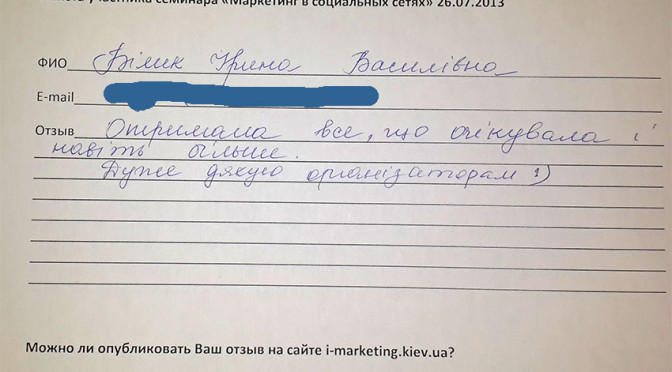 участника семинара «Маркетинг в социальных сетях» 26.07.2013
ФИО Білик Ірина Василівна
E-mail
Отзыв Отримала все, що очікувала і
навіть більше.
Дуже дякую організаторам :)
Можно ли опубликовать Ваш отзыв на сайте i-marketing.kiev.ua?